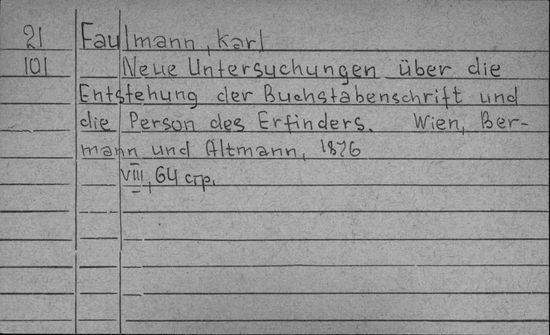 21 Faulmann, Karl
101 Neue Untersuchungen über die
Entstehung der Buchstabenschrift und
die Person des Erfinders. Wien, Ber-
mann und Altmann, 1876
VIII, 64 стр.